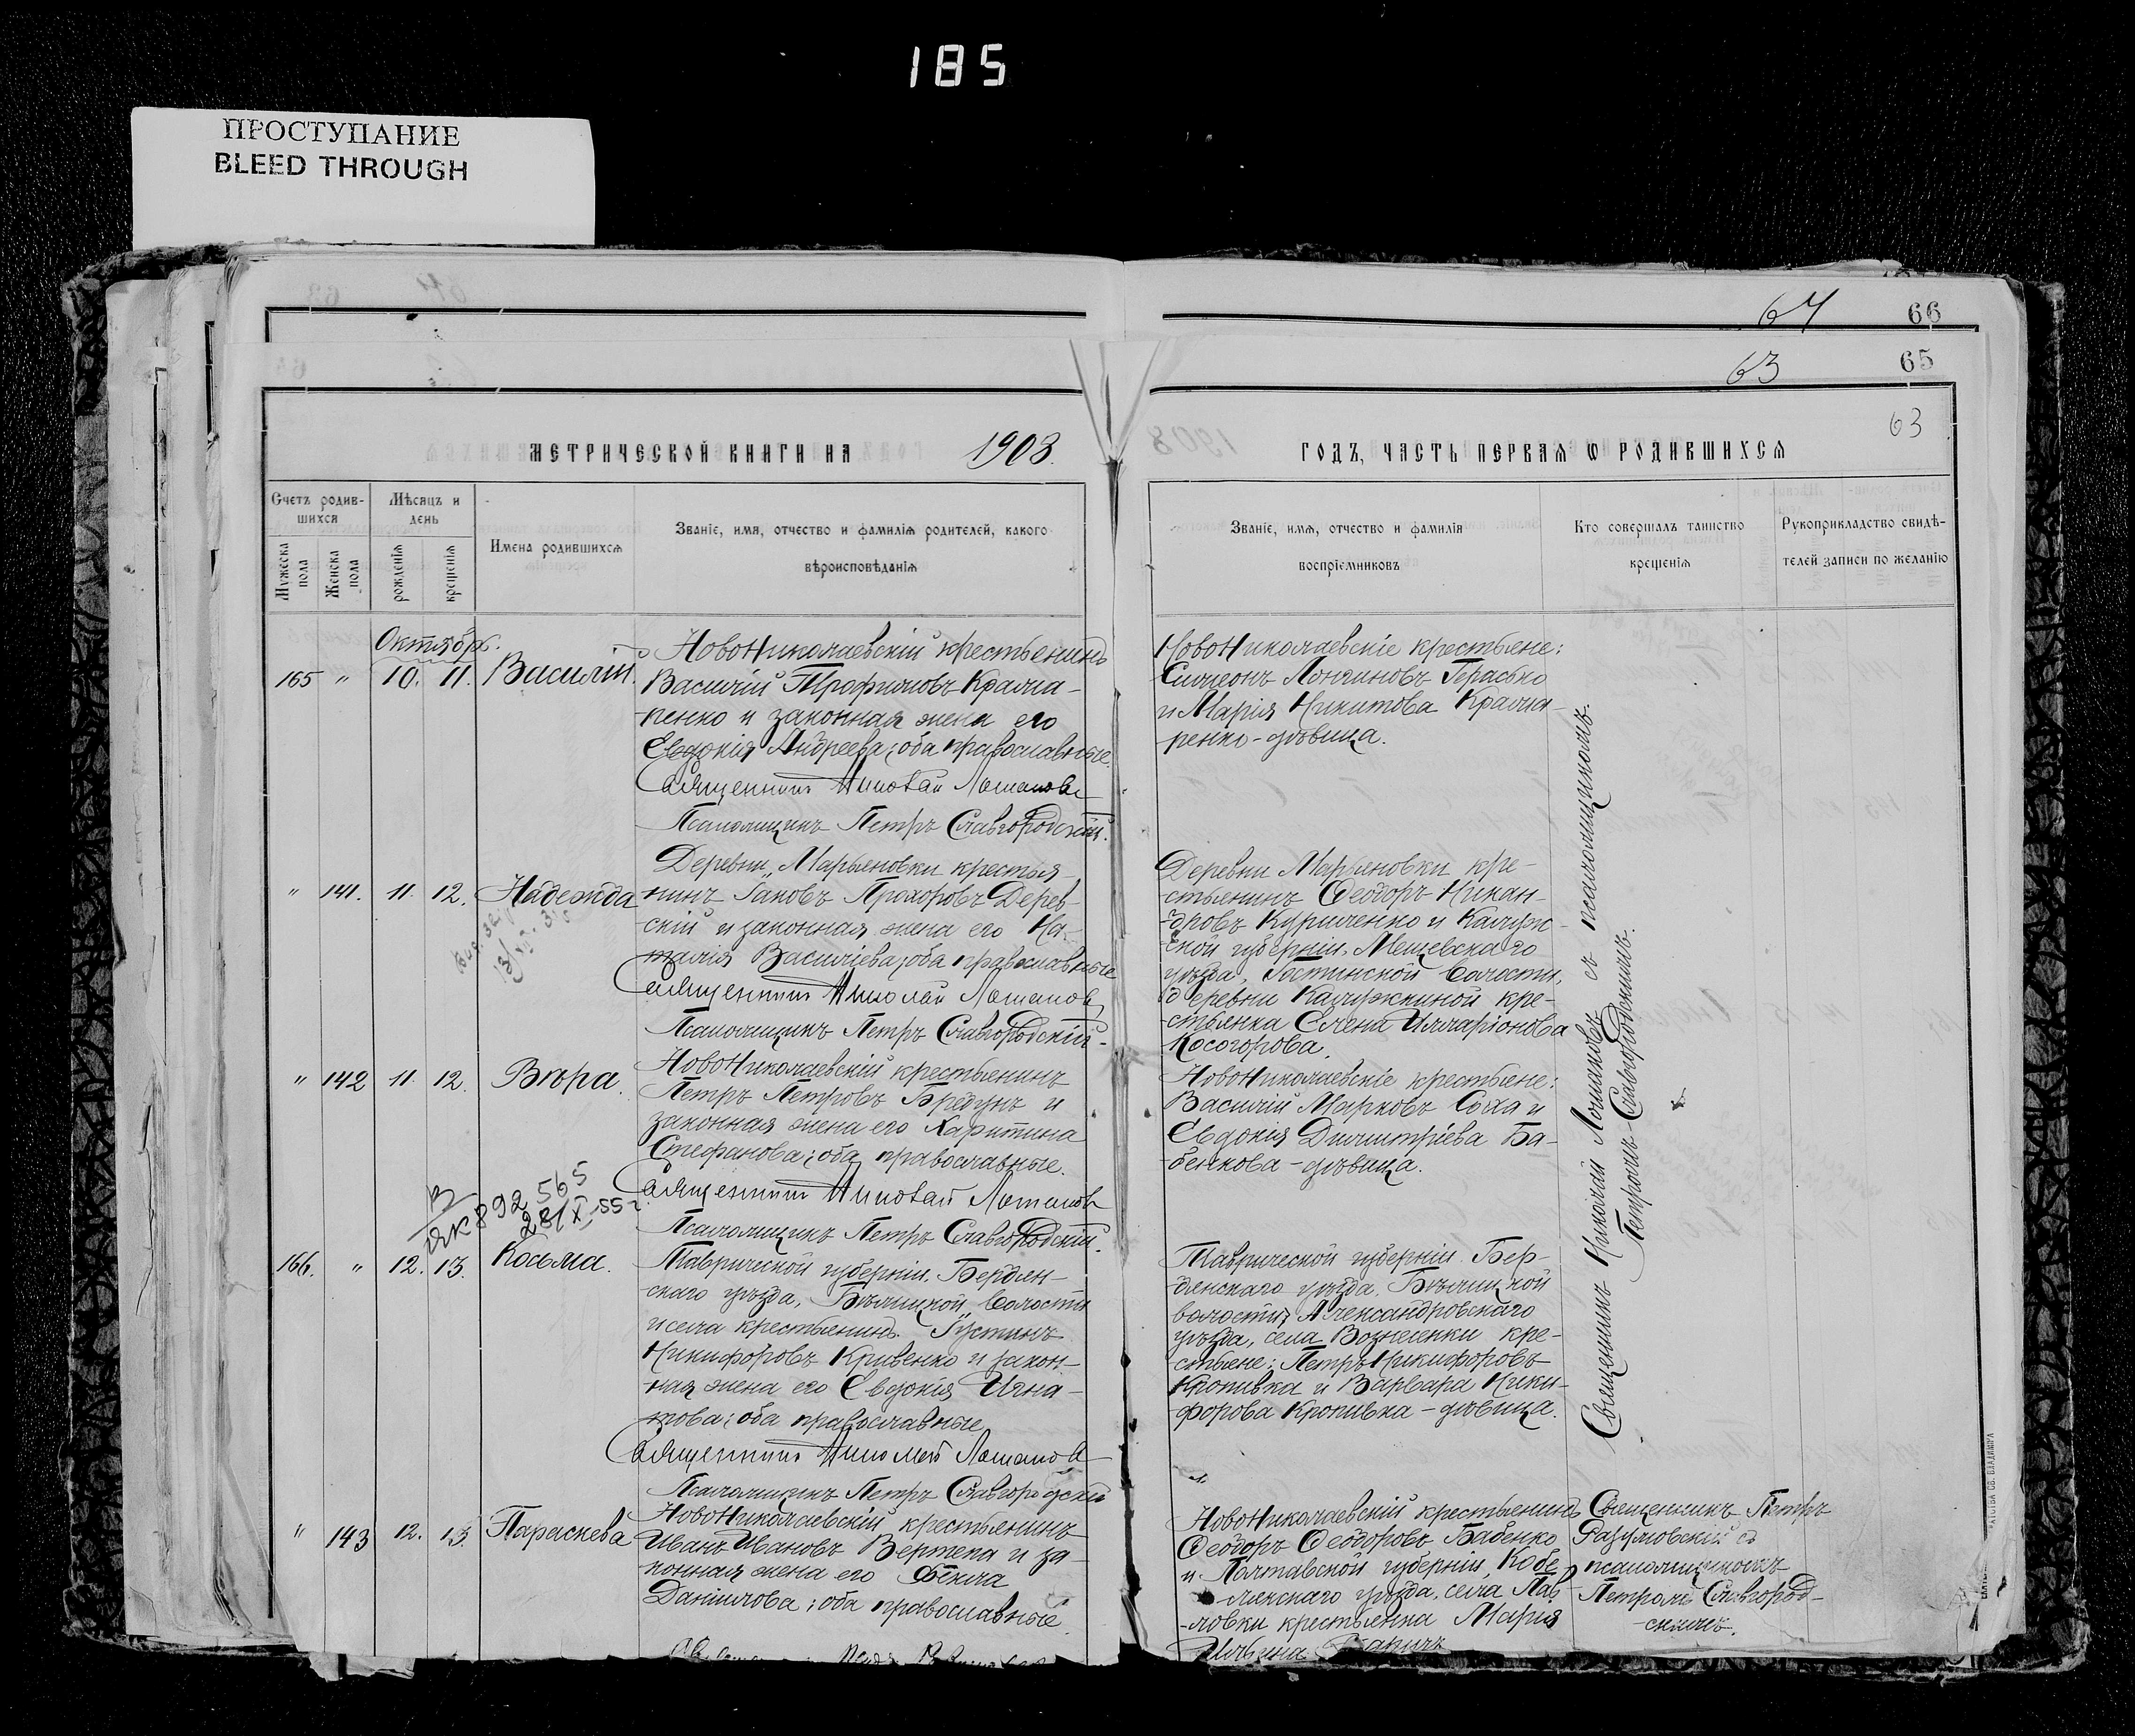 185
ПРОСТУПАНИЕ
BLEED THROUGH
64 66
63 65
63
МЕТРИЧЕСКОЙ КНИГИ НА 1908.
ГОДЪ, ЧАСТЬ ПЕРВАЯ Ѡ РОДИВШИХСЯ
Счетъ родив-
шихся
Мужеска
пола
Женска
пола
Мѣсяцъ и
день
рожденія
крещенія
Имена родившихся
Званіе, имя, отчество и фамилія родителей, какого
вѣроисповѣданія
Званіе, имя, отчество и фамилія
воспріемниковъ
Кто совершалъ таинство
крещенія
Рукоприкладство свидѣ-
телей записи по желанію
Октябрь.
165 " 10. 11. Василій.
НовоНиколаевскій крестьянинъ
Василій Трофимовъ Крама-
ренко и законная жена его
Евдокія Андреева; оба православные.
Священникъ Николай Ломановъ
Псаломщикъ Петръ Славгородскій.
НовоНиколаевскіе крестьяне:
Симеонъ Лонгиновъ Герасько
и Марія Никитова Крама-
ренко - дѣвица.
" 141. 11. 12. Надежда
Деревни Марьяновки крестья-
нинъ Іаковъ Прохоровъ Дерев-
скій и законная жена его На-
талія Василіева; оба православные
Священникъ Николай Ломановъ
Псаломщикъ Петръ Славгородскій.
Деревни Марьяновки кре-
стьянинъ Ѳеодоръ Никан-
дровъ Куриленко и Калуж-
ской губерніи, Мещевскаго
уѣзда, волости,
деревни кре-
стьянка Елена Илларіонова
Косогорова.
" 142 11. 12. Вѣра.
НовоНиколаевскій крестьянинъ
Петръ Петровъ Бредунъ и
законная жена его Харитина
Стефанова; оба православные.
Священникъ Николай Ломановъ
Псаломщикъ Петръ Славгородскій.
НовоНиколаевскіе крестьяне:
Василій Марковъ Соха и
Евдокія Димитріева Ба-
бенкова - дѣвица.
892565
166. " 12. 13. Косьма.
Таврической губерніи, Бердян-
скаго уѣзда, волости
и села крестьянинъ Іустинъ
Никифоровъ Кривенко и закон-
ная жена его Евдокія Игна-
това; оба православные
Священникъ Николай Ломановъ
Псаломщикъ Петръ Славгородскій
Таврической губерніи Бер-
дянскаго уѣзда,
волости, Александровскаго
уѣзда, села Вознесенки кре-
стьяне: Петръ Никифоровъ
Кропивка и Варвара Ники-
форова Кропивка - дѣвица.
Священникъ Николай Ломановъ съ псаломщикомъ
Петромъ Славгородскимъ.
" 143 12. 13. Параскева
НовоНиколаевскій крестьянинъ
Иванъ Ивановъ Вертепа и за-
конная жена его Ѳекла
Даніилова; оба православные.
НовоНиколаевскій крестьянинъ
Ѳеодоръ Ѳеодоровъ Бабенко
и Полтавской губерніи, Кобе-
лякскаго уѣзда, села Пав-
ловки крестьянка Марія
Священникъ Петръ
Разумовскій съ
псаломщикомъ
Петромъ Славгород-
скимъ.